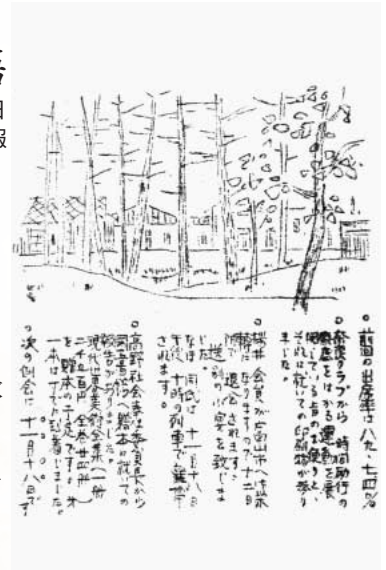 ○前回の出席率は八九、七四%
○奈良クラブから 時間励行の
徹底をはかる運動を展
開している旨のお便りと、
それに就いての印刷物が参り
ました。
○桜井会員が へ御栄
転になりますので十二日
限で退会されます。
送別の小宴を致しま
した。
なほ同氏は十一月十八日
午後十時の列車で
されます。
○高野社会奉仕委員長から
に就いての
報告がありました。
現代世界美術全集(一冊
二千五百円 全巻廿四冊)
を 本の予定です。第
一本はすでに到着しました。
○次の例会は十一月十八日です